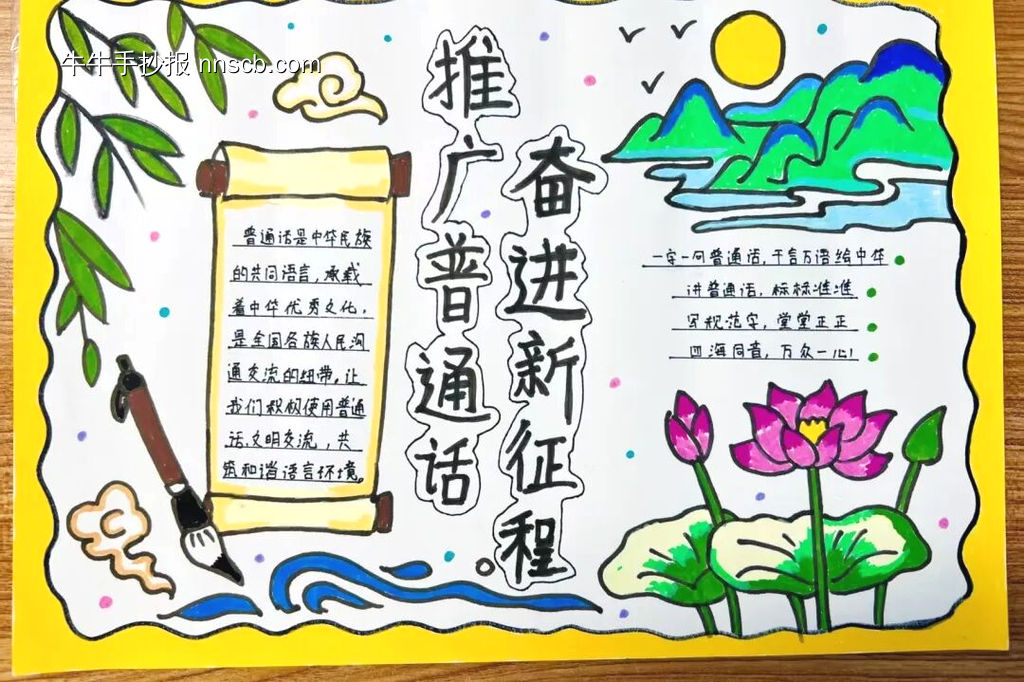 牛牛手抄报 nnscb.com
推广普通话
奋进新征程
普通话是中华民族
的共同语言，承载
着中华优秀文化，
是全国各族人民沟
通交流的纽带，让
我们积极使用普通
话，文明交流，共
筑和谐语言环境。
一字一句普通话，千言万语绘中华
讲普通话，标标准准
写规范字，堂堂正正
四海同音，万众一心！